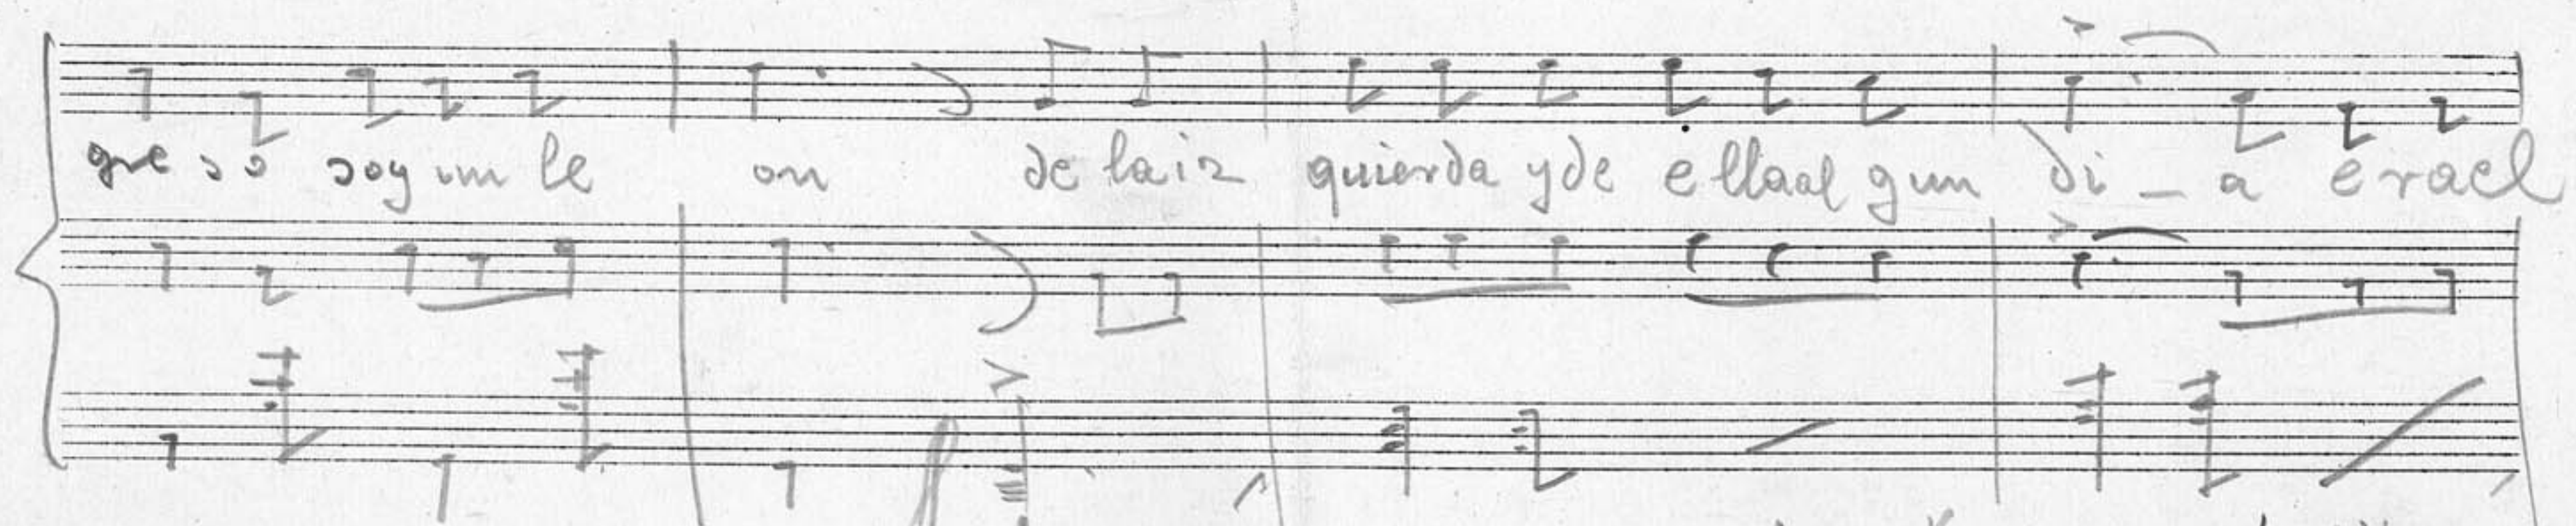 gre so soy un le on de la iz quierda y de e lla al gun di _ a e ra el